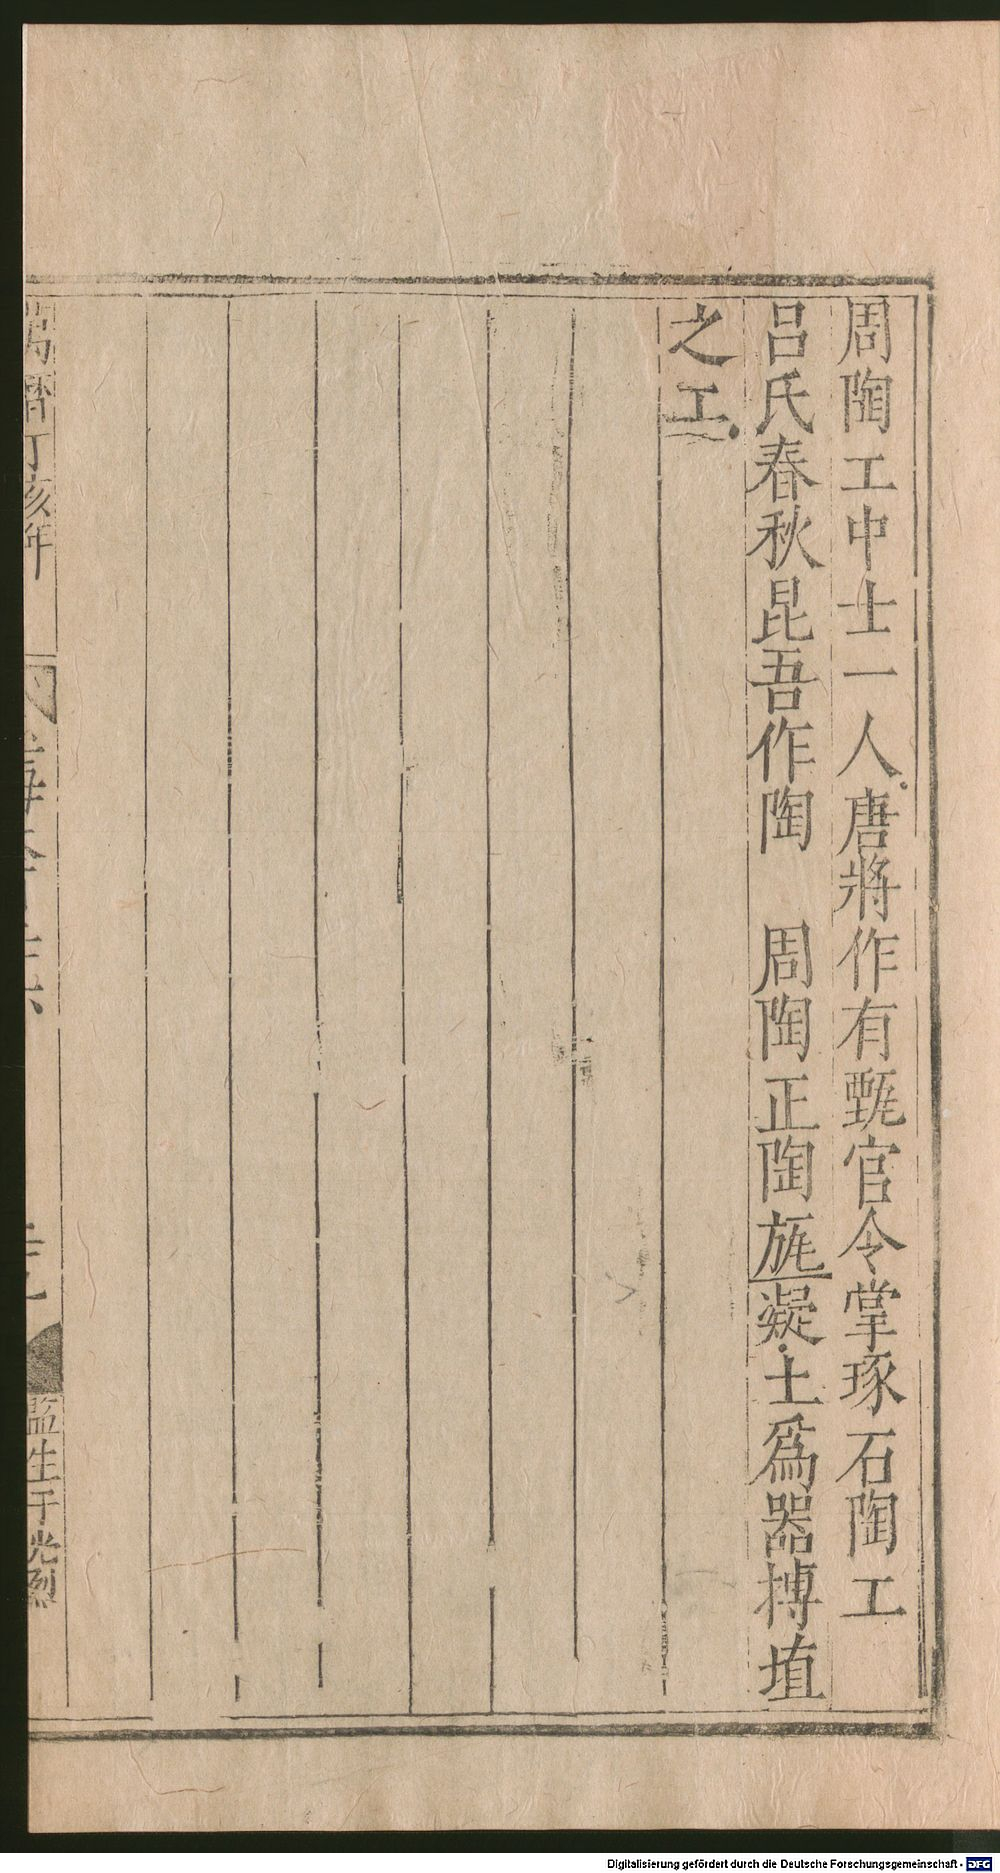 周陶工中士一人唐將作有甄官令掌琢石陶工
呂氏春秋昆吾作陶　周陶正陶旊凝土爲器摶埴
之工
萬曆丁亥年
監生于光烈
Digitalisierung gefördert durch die Deutsche Forschungsgemeinschaft - DFG